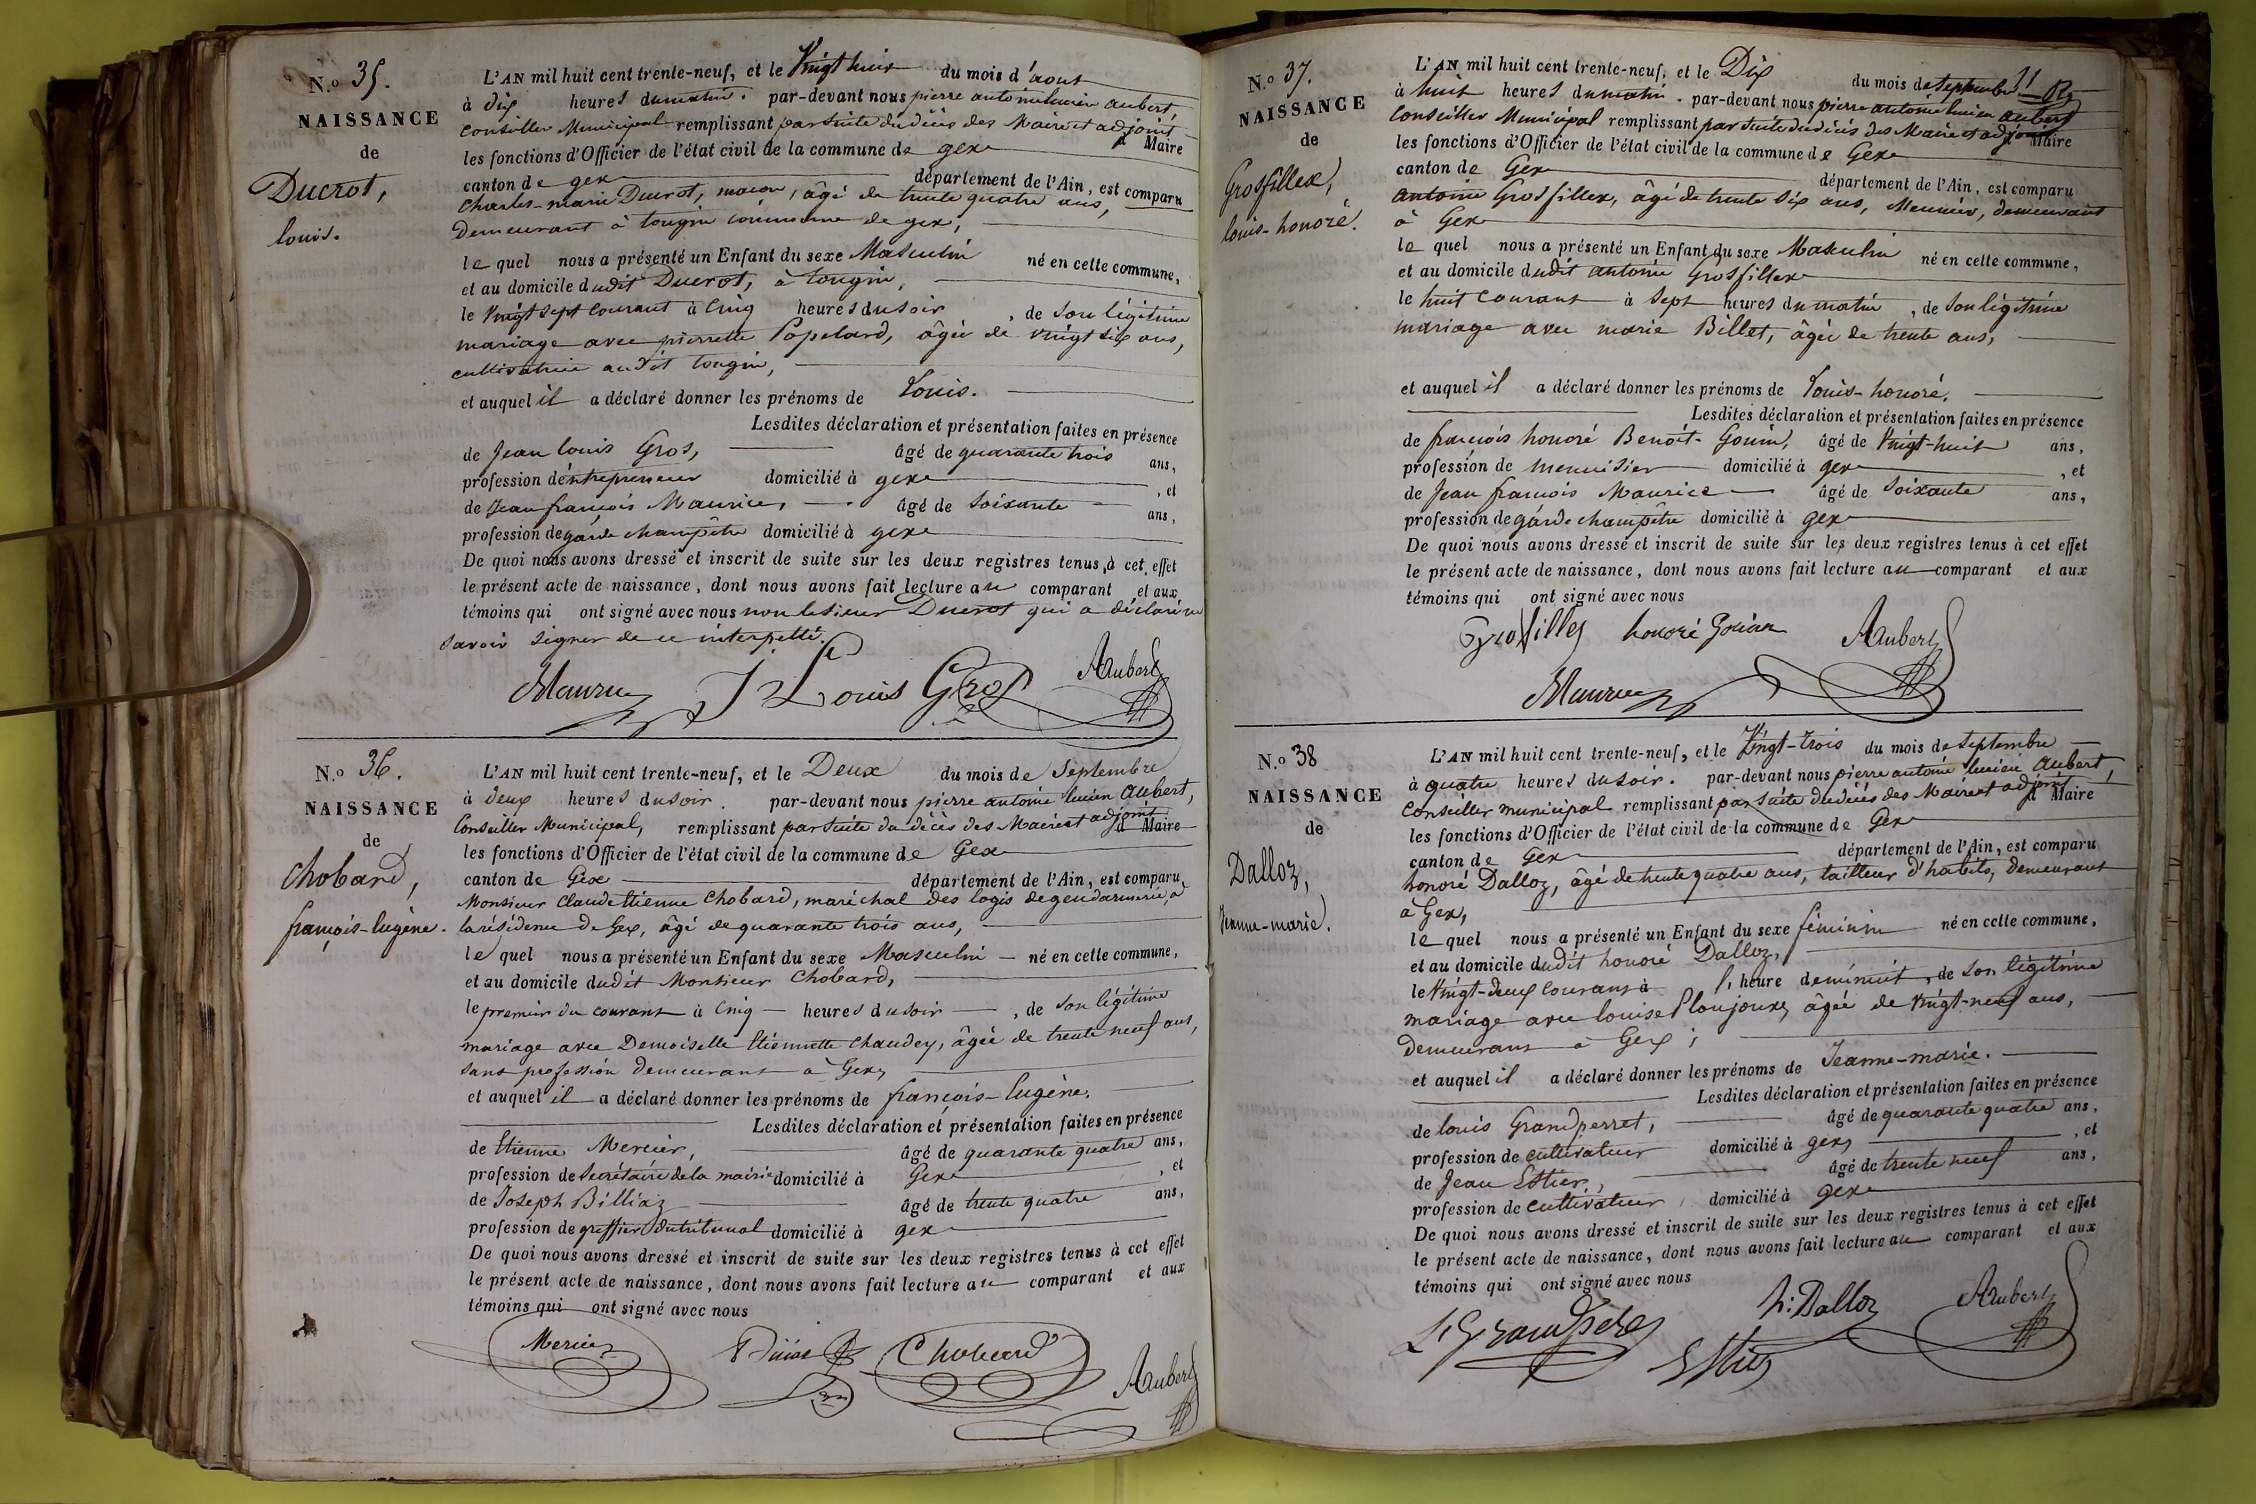 N.o 35.
NAISSANCE
de
Ducrot,
louis.
L'AN mil huit cent trente-neuf, et le Vingt huit du mois d'aout
à dix heures du matin. par-devant nous pierre antoine lucien aubert,
Conseiller Municipal remplissant par suite du décès des Maire et adjoint
les fonctions d'Officier de l'état civil de la commune de gex Maire
canton de gex département de l'Ain, est comparu
Charles-marie Ducrot, maçon, âgé de trente quatre ans,
demeurant à tougin commune de gex,
le quel nous a présenté un Enfant du sexe Masculin né en cette commune,
et au domicile dudit Ducrot, à tougin,
le Vingt sept courant à Cinq heures du soir, de son légitime
mariage avec pierrette Popelard, âgée de vingt six ans,
cultivatrice audit tougin,
et auquel il a déclaré donner les prénoms de Louis.
Lesdites déclaration et présentation faites en présence
de Jean louis Gros, âgé de quarante trois ans,
profession d'entrepreneur domicilié à gex, et
de Jean françois Maurice, âgé de soixante ans,
profession de garde champêtre domicilié à gex
De quoi nous avons dressé et inscrit de suite sur les deux registres tenus à cet effet
le présent acte de naissance, dont nous avons fait lecture au comparant et aux
témoins qui ont signé avec nous non le sieur Ducrot qui a déclaré ne
savoir signer de ce interpellé.
Maurice J Louis Gros AAubert
N.o 36.
NAISSANCE
de
Chobard,
françois-Eugène.
L'AN mil huit cent trente-neuf, et le Deux du mois de Septembre
à deux heures du soir. par-devant nous pierre antoine lucien Aubert,
Conseiller Municipal, remplissant par suite du décès des Maire et adjoint Maire
les fonctions d'Officier de l'état civil de la commune de Gex
canton de Gex département de l'Ain, est comparu
Monsieur Claude Etienne Chobard, maréchal des logis de gendarmerie, à
la résidence de Gex, âgé de quarante trois ans,
le quel nous a présenté un Enfant du sexe Masculin né en cette commune,
et au domicile dudit Monsieur Chobard,
le premier du courant à Cinq heures du soir, de son légitime
mariage avec Demoiselle Etiennette Chaudey, âgée de trente neuf ans,
sans profession demeurant à Gex,
et auquel il a déclaré donner les prénoms de françois-Eugène.
Lesdites déclaration et présentation faites en présence
de Etienne Mercier, âgé de quarante quatre ans,
profession de Secrétaire de la mairie domicilié à Gex, et
de Joseph Billiaz âgé de trente quatre ans,
profession de greffier du tribunal domicilié à gex
De quoi nous avons dressé et inscrit de suite sur les deux registres tenus à cet effet
le présent acte de naissance, dont nous avons fait lecture au comparant et aux
témoins qui ont signé avec nous
Mercier Chobard AAubert
N.o 37.
NAISSANCE
de
Grosfillex,
louis-honoré.
L'AN mil huit cent trente-neuf, et le Dix du mois de Septembre
à huit heures du matin. par-devant nous pierre antoine lucien aubert
Conseiller Municipal remplissant par suite du décès des Maire et adjoint
les fonctions d'Officier de l'état civil de la commune de Gex Maire
canton de Gex département de l'Ain, est comparu
antoine Grosfillex, âgé de trente six ans, Meunier, demeurant
à Gex
le quel nous a présenté un Enfant du sexe Masculin né en cette commune,
et au domicile dudit antoine Grosfillex
le huit courant à Sept heures du matin, de son légitime
mariage avec marie Billet, âgée de trente ans,
et auquel il a déclaré donner les prénoms de Louis-honoré.
Lesdites déclaration et présentation faites en présence
de françois honoré Benoît-Gonin, âgé de Vingt-huit ans,
profession de menuisier domicilié à gex, et
de Jean françois Maurice âgé de Soixante ans,
profession de garde champêtre domicilié à gex
De quoi nous avons dressé et inscrit de suite sur les deux registres tenus à cet effet
le présent acte de naissance, dont nous avons fait lecture au comparant et aux
témoins qui ont signé avec nous
honoré Gonin AAubert
Maurice
N.o 38
NAISSANCE
de
Dalloz,
Jeanne-marie.
L'AN mil huit cent trente-neuf, et le Vingt-trois du mois de Septembre
à quatre heures du soir. par-devant nous pierre antoine lucien aubert,
Conseiller municipal remplissant par suite du décès des Maire et adjoint Maire
les fonctions d'Officier de l'état civil de la commune de Gex
canton de Gex département de l'Ain, est comparu
honoré Dalloz, âgé de trente quatre ans, tailleur d'habits, demeurant
à Gex,
le quel nous a présenté un Enfant du sexe féminin né en cette commune,
et au domicile dudit honoré Dalloz,
le Vingt-deux courant à l'heure de minuit, de son légitime
mariage avec louise Ploujoux, âgée de Vingt-neuf ans,
demeurant à Gex;
et auquel il a déclaré donner les prénoms de Jeanne-marie.
Lesdites déclaration et présentation faites en présence
de louis Grandperret, âgé de quarante quatre ans,
profession de cultivateur domicilié à gex, et
de Jean Esthier, âgé de trente neuf ans,
profession de cultivateur domicilié à gex
De quoi nous avons dressé et inscrit de suite sur les deux registres tenus à cet effet
le présent acte de naissance, dont nous avons fait lecture au comparant et aux
témoins qui ont signé avec nous
h: Dalloz AAubert